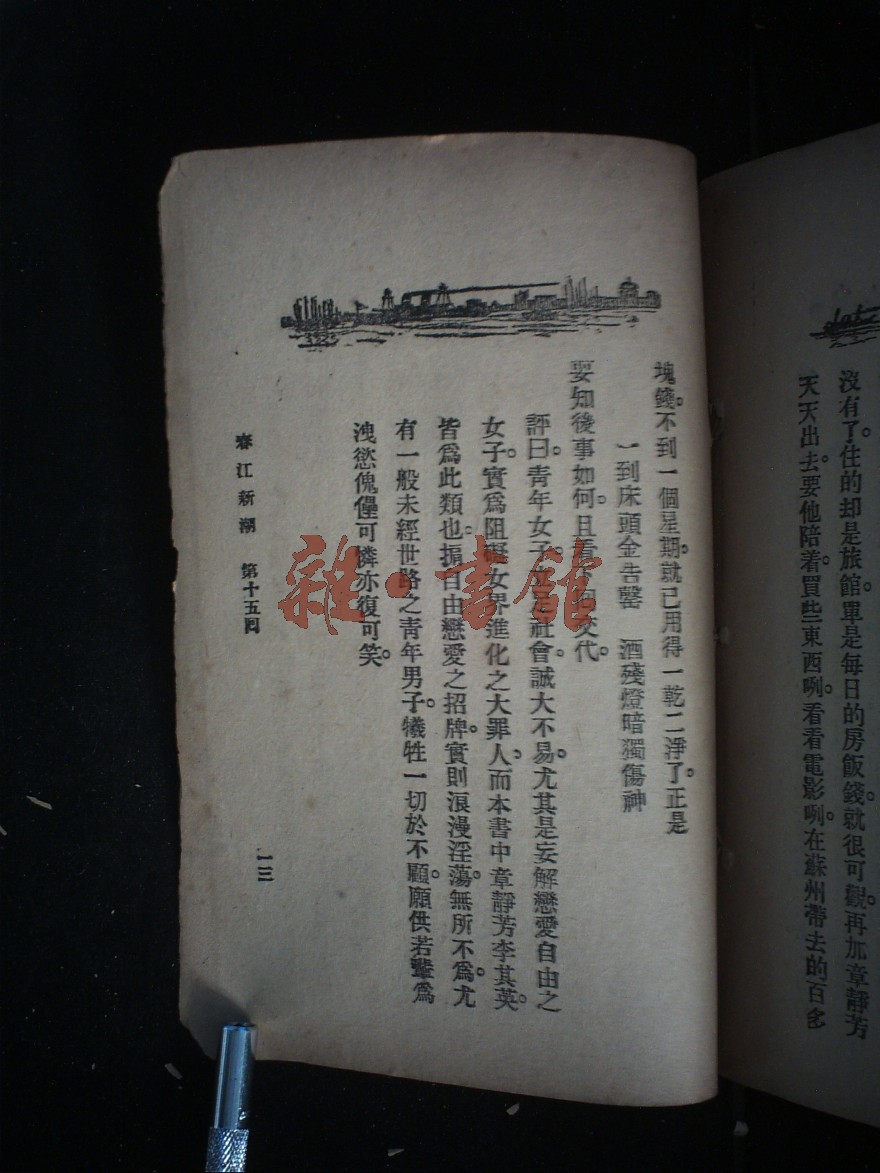 沒有了。住的却是旅館。單是每日的房飯錢。就很可觀。再加章靜芳
天天出去。要他陪着。買些東西咧。看看電影咧。在蘇州帶去的百多
塊錢。不到一個星期。就已用得一乾二淨了。正是
一到床頭金告罄　酒殘燈暗獨傷神
要知後事如何。且看下回交代。
評曰。青年女子。立足社會。誠大不易。尤其是妄解戀愛自由之
女子。實爲阻礙女界進化之大罪人。而本書中章靜芳李其英。
皆爲此類也。揭自由戀愛之招牌。實則浪漫淫蕩。無所不爲。尤
有一般未經世路之青年男子。犧牲一切於不顧。願供若輩爲
洩慾傀儡。可憐亦復可笑。
春江新潮　第十五回
一三
雜·書館